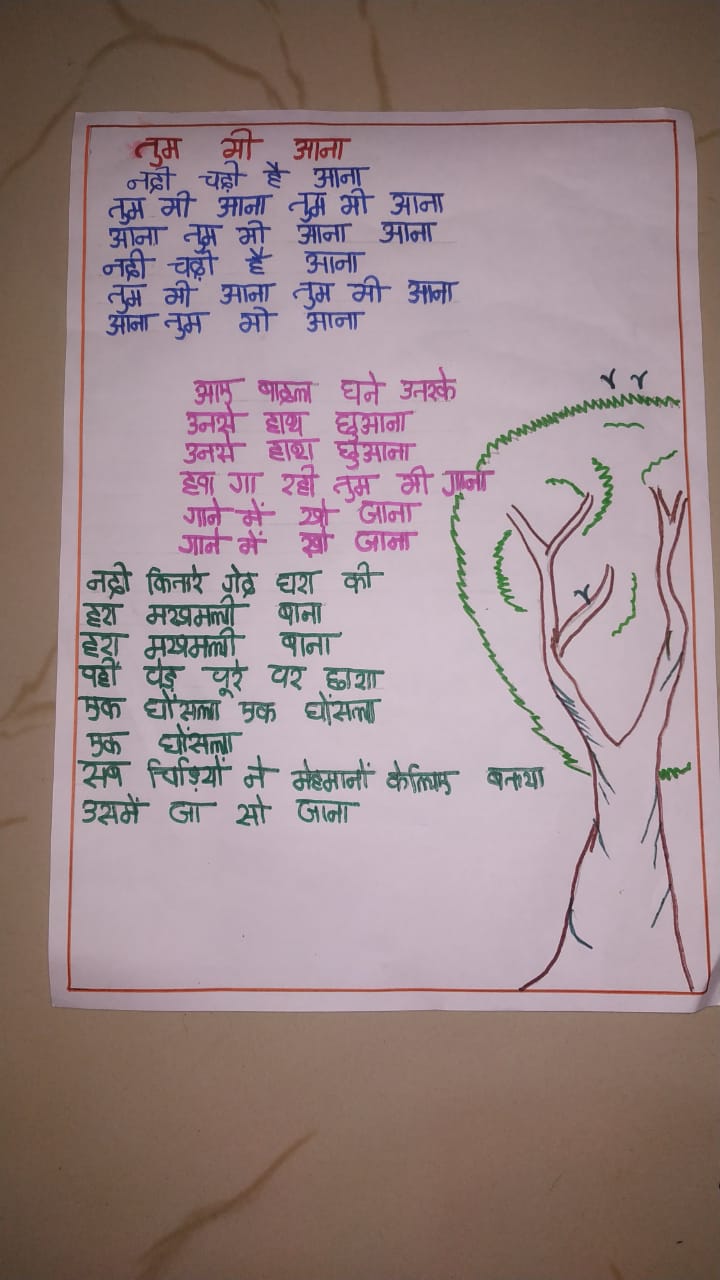 तुम भी आना
नदी चढ़ी है आना
तुम भी आना तुम भी आना
आना तुम भी आना आना
नदी चढ़ी है आना
तुम भी आना तुम भी आना
आना तुम भी आना
आए बादल घने उनके
उनसे हाथ छुआना
उनसे हाथ छुआना
हवा गा रही तुम भी गाना
गाने में खो जाना
गाने में खो जाना
नदी किनारे गोद धरा की
हरा मखमली बाना
हरा मखमली बाना
वहीं पेड़ पूरे पर छाया
एक घोंसला एक घोंसला
एक घोंसला
सब चिड़ियों ने मेहमानों केलिए बनाया
उसमें जा सो जाना